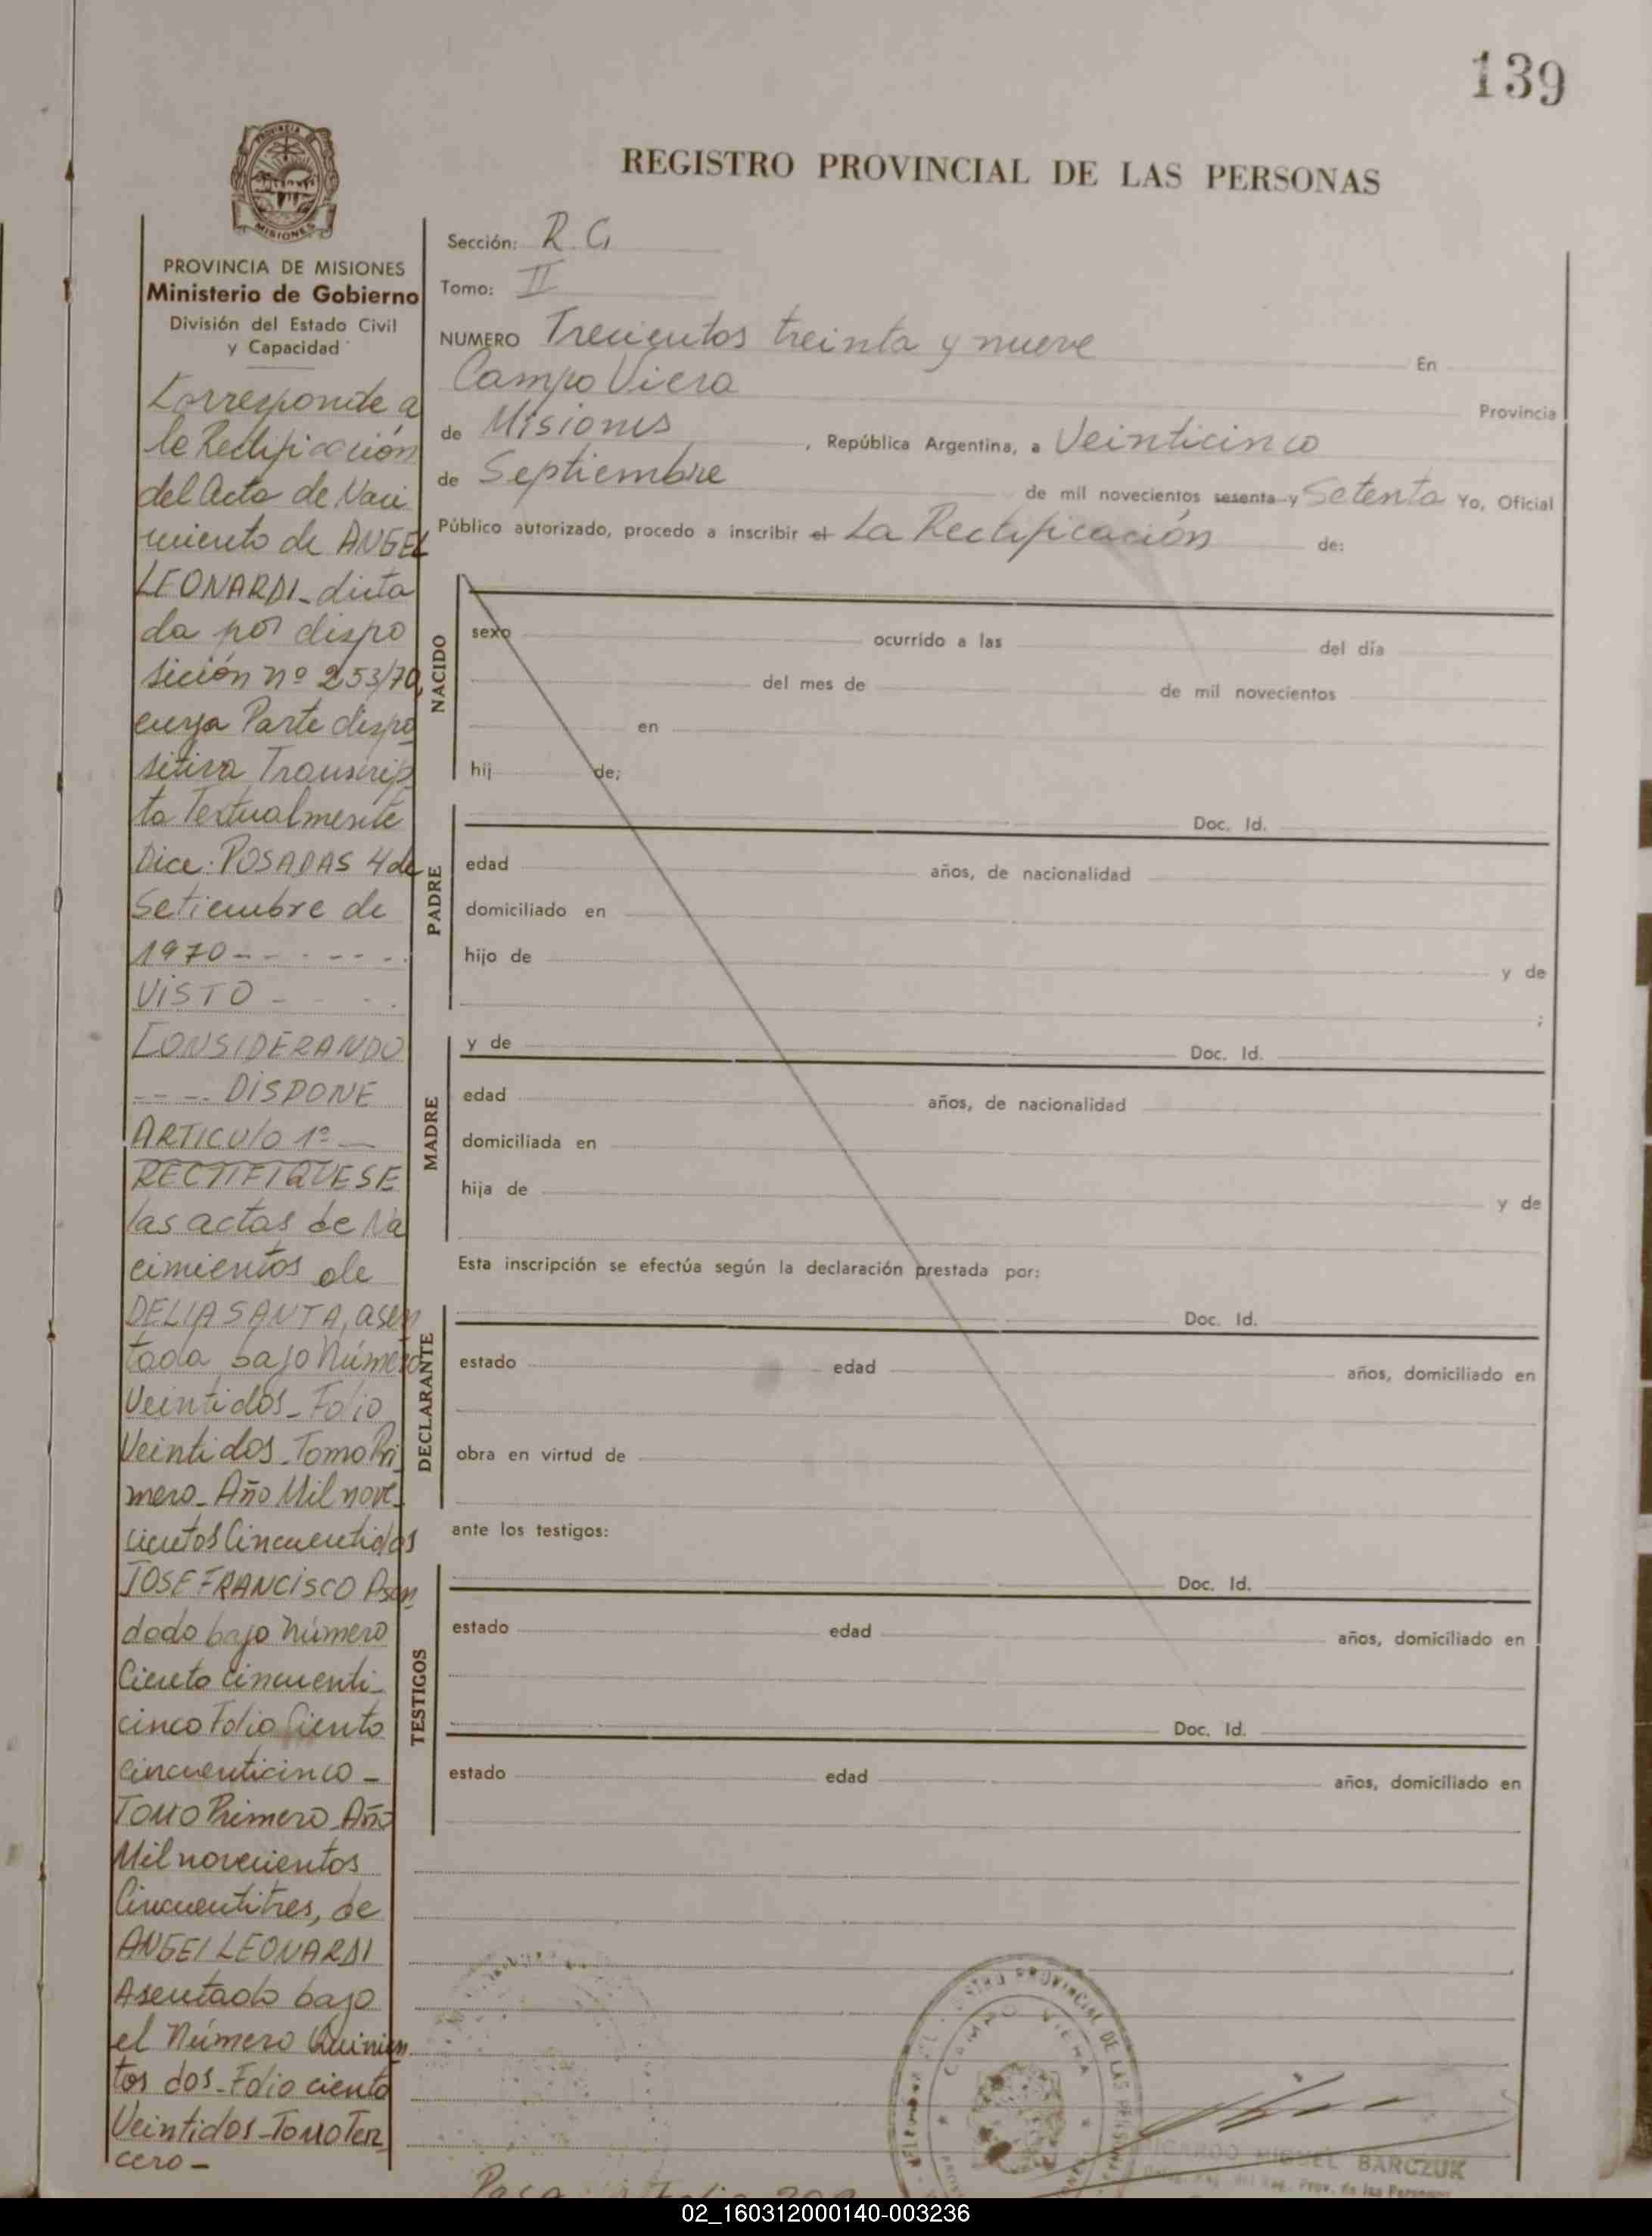 139
REGISTRO PROVINCIAL DE LAS PERSONAS
PROVINCIA DE MISIONES
Ministerio de Gobierno
División del Estado Civil
y Capacidad
Corresponde a
la Rectificación
del Acta de Naci
miento de ANGEL
LEONARDI_ dicta
da por dispo
sición nº 253/70,
cuya Parte dispo
sitiva Transcrip
ta Textualmente
Dice: POSADAS 4 de
Setiembre de
1970 - - - - - -
VISTO - - - -
CONSIDERANDO
- - - - DISPONE
ARTICULO 1º _
RECTIFIQUESE
las actas de Na
cimientos de
DELIA SANTA, asen
tada bajo Número
Veintidos_ Folio
Veintidos_ Tomo Pri
mero_ Año Mil nove_
cientos Cincuentidos
JOSE FRANCISCO Asen
dado bajo número
Ciento cincuenti_
cinco Folio Ciento
cincuenticinco _
Tomo Primero_ Año
Mil novecientos
Cincuentitres, de
ANGEL LEONARDI
Asentado bajo
el Número Quinien
tos dos_ Folio ciento
Veintidos_ Tomo Ter
cero _
Sección: R. C.
Tomo: II
NUMERO Trecientos treinta y nueve En
Campo Viera Provincia
de Misiones , República Argentina, a Veinticinco
de Septiembre de mil novecientos sesenta y Setenta Yo, Oficial
Público autorizado, procedo a inscribir el La Rectificación de:
NACIDO
sexo ocurrido a las del día
del mes de de mil novecientos
en
hij de;
PADRE
Doc. Id.
edad años, de nacionalidad
domiciliado en
hijo de y de
;
MADRE
y de Doc. Id.
edad años, de nacionalidad
domiciliada en
hija de y de
Esta inscripción se efectúa según la declaración prestada por:
DECLARANTE
Doc. Id.
estado edad años, domiciliado en
obra en virtud de
ante los testigos:
TESTIGOS
Doc. Id.
estado edad años, domiciliado en
Doc. Id.
estado edad años, domiciliado en
PROVINCIAL DE LAS
CAMPO VIERA
RICARDO MIGUEL BARCZUK
Pasa Folio
02_160312000140-003236